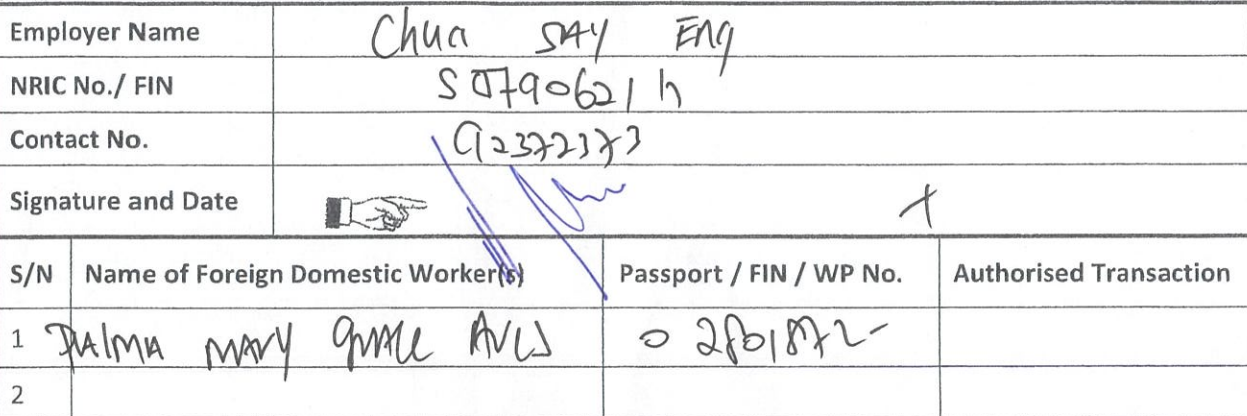 Employer Name Chua SAY Eng
NRIC No./ FIN S0790621h
Contact No. 92372373
Signature and Date
S/N Name of Foreign Domestic Worker(s) Passport / FIN / WP No. Authorised Transaction
1 PALMA MARY 0 2801872-
2